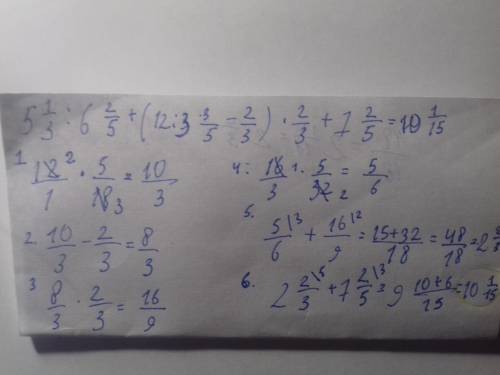 5 1/3 : 6 2/5 + (12 : 3 3/5 - 2/3) · 2/3 + 7 2/5 = 10 1/15
1 12 2/1 · 5/18 3 = 10/3
2. 10/3 - 2/3 = 8/3
3 8/3 · 2/3 = 16/9
4: 16 1/3 · 5/32 2 = 5/6
5. 5\3/6 + 16\2/9 = 15+32/18 = 48/18 = 2
6. 2 2\5/3 + 7 2\3/5 = 9 10+6/15 = 10 1/15